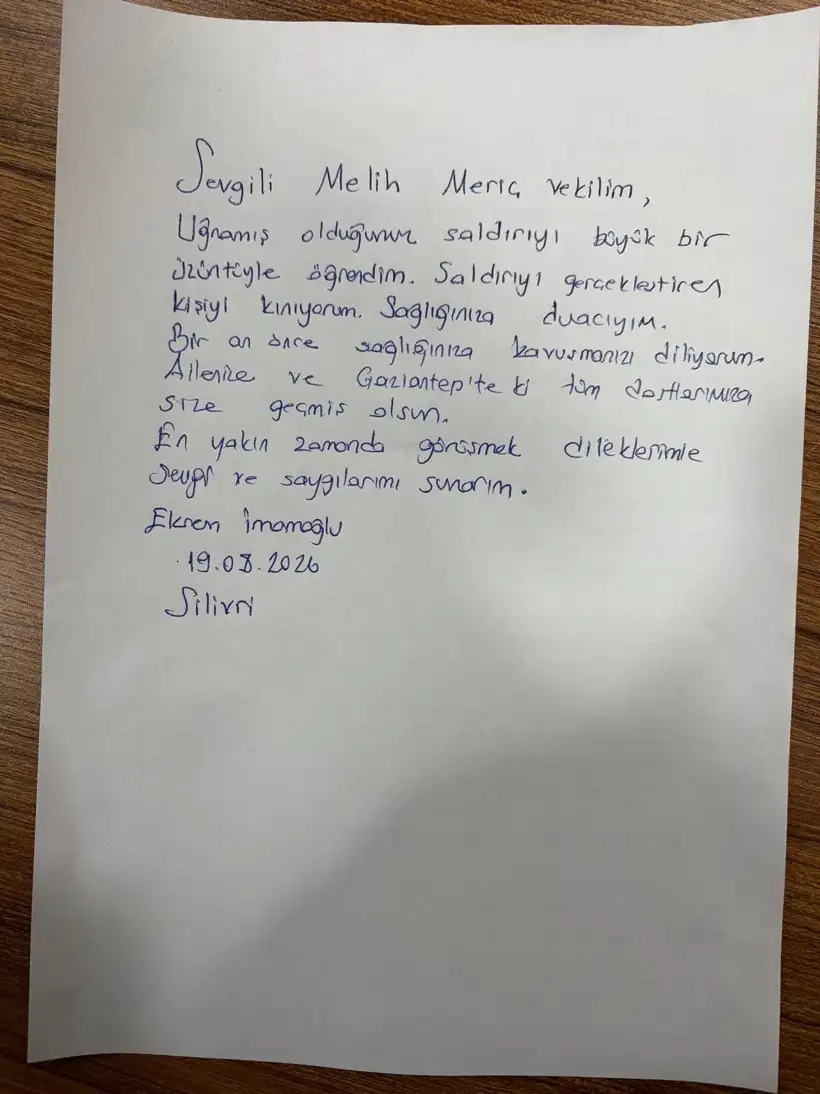 Sevgili Melih Meriç vekilim,
Uğramış olduğunuz saldırıyı büyük bir
üzüntüyle öğrendim. Saldırıyı gerçekleştiren
kişiyi kınıyorum. Sağlığınıza duacıyım.
Bir an önce sağlığınıza kavuşmanızı diliyorum.
Ailenize ve Gaziantep'te ki tüm dostlarımıza
size geçmiş olsun.
En yakın zamanda görüşmek dileklerimle
sevgi ve saygılarımı sunarım.
Ekrem İmamoğlu
19.03.2026
Silivri